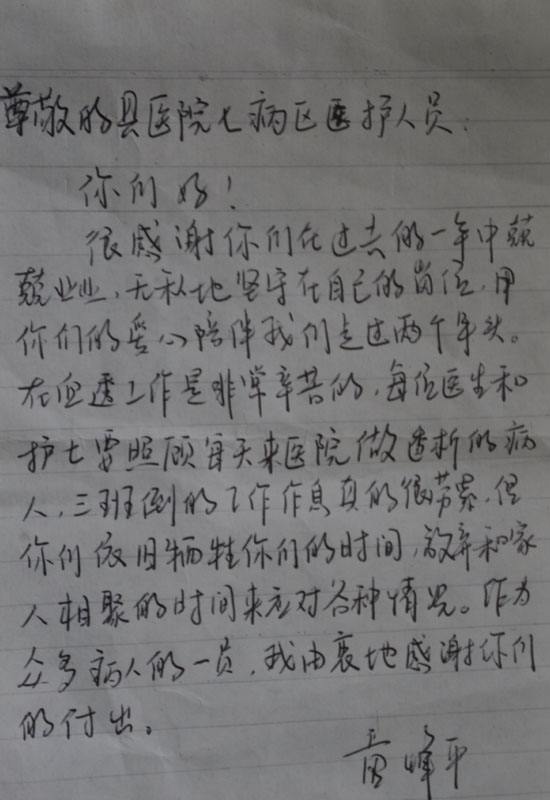 尊敬的县医院七病区医护人员：
你们好！
很感谢你们在过去的一年中兢
兢业业、无私地坚守在自己的岗位，用
你们的爱心陪伴我们走过两个年头。
在血透工作是非常辛苦的，每位医生和
护士要照顾每天来医院做透析的病
人，三班倒的工作作息真的很劳累，但
你们依旧牺牲你们的时间，放弃和家
人相聚的时间来应对各种情况。作为
众多病人的一员，我由衷地感谢你们
的付出。
峰平